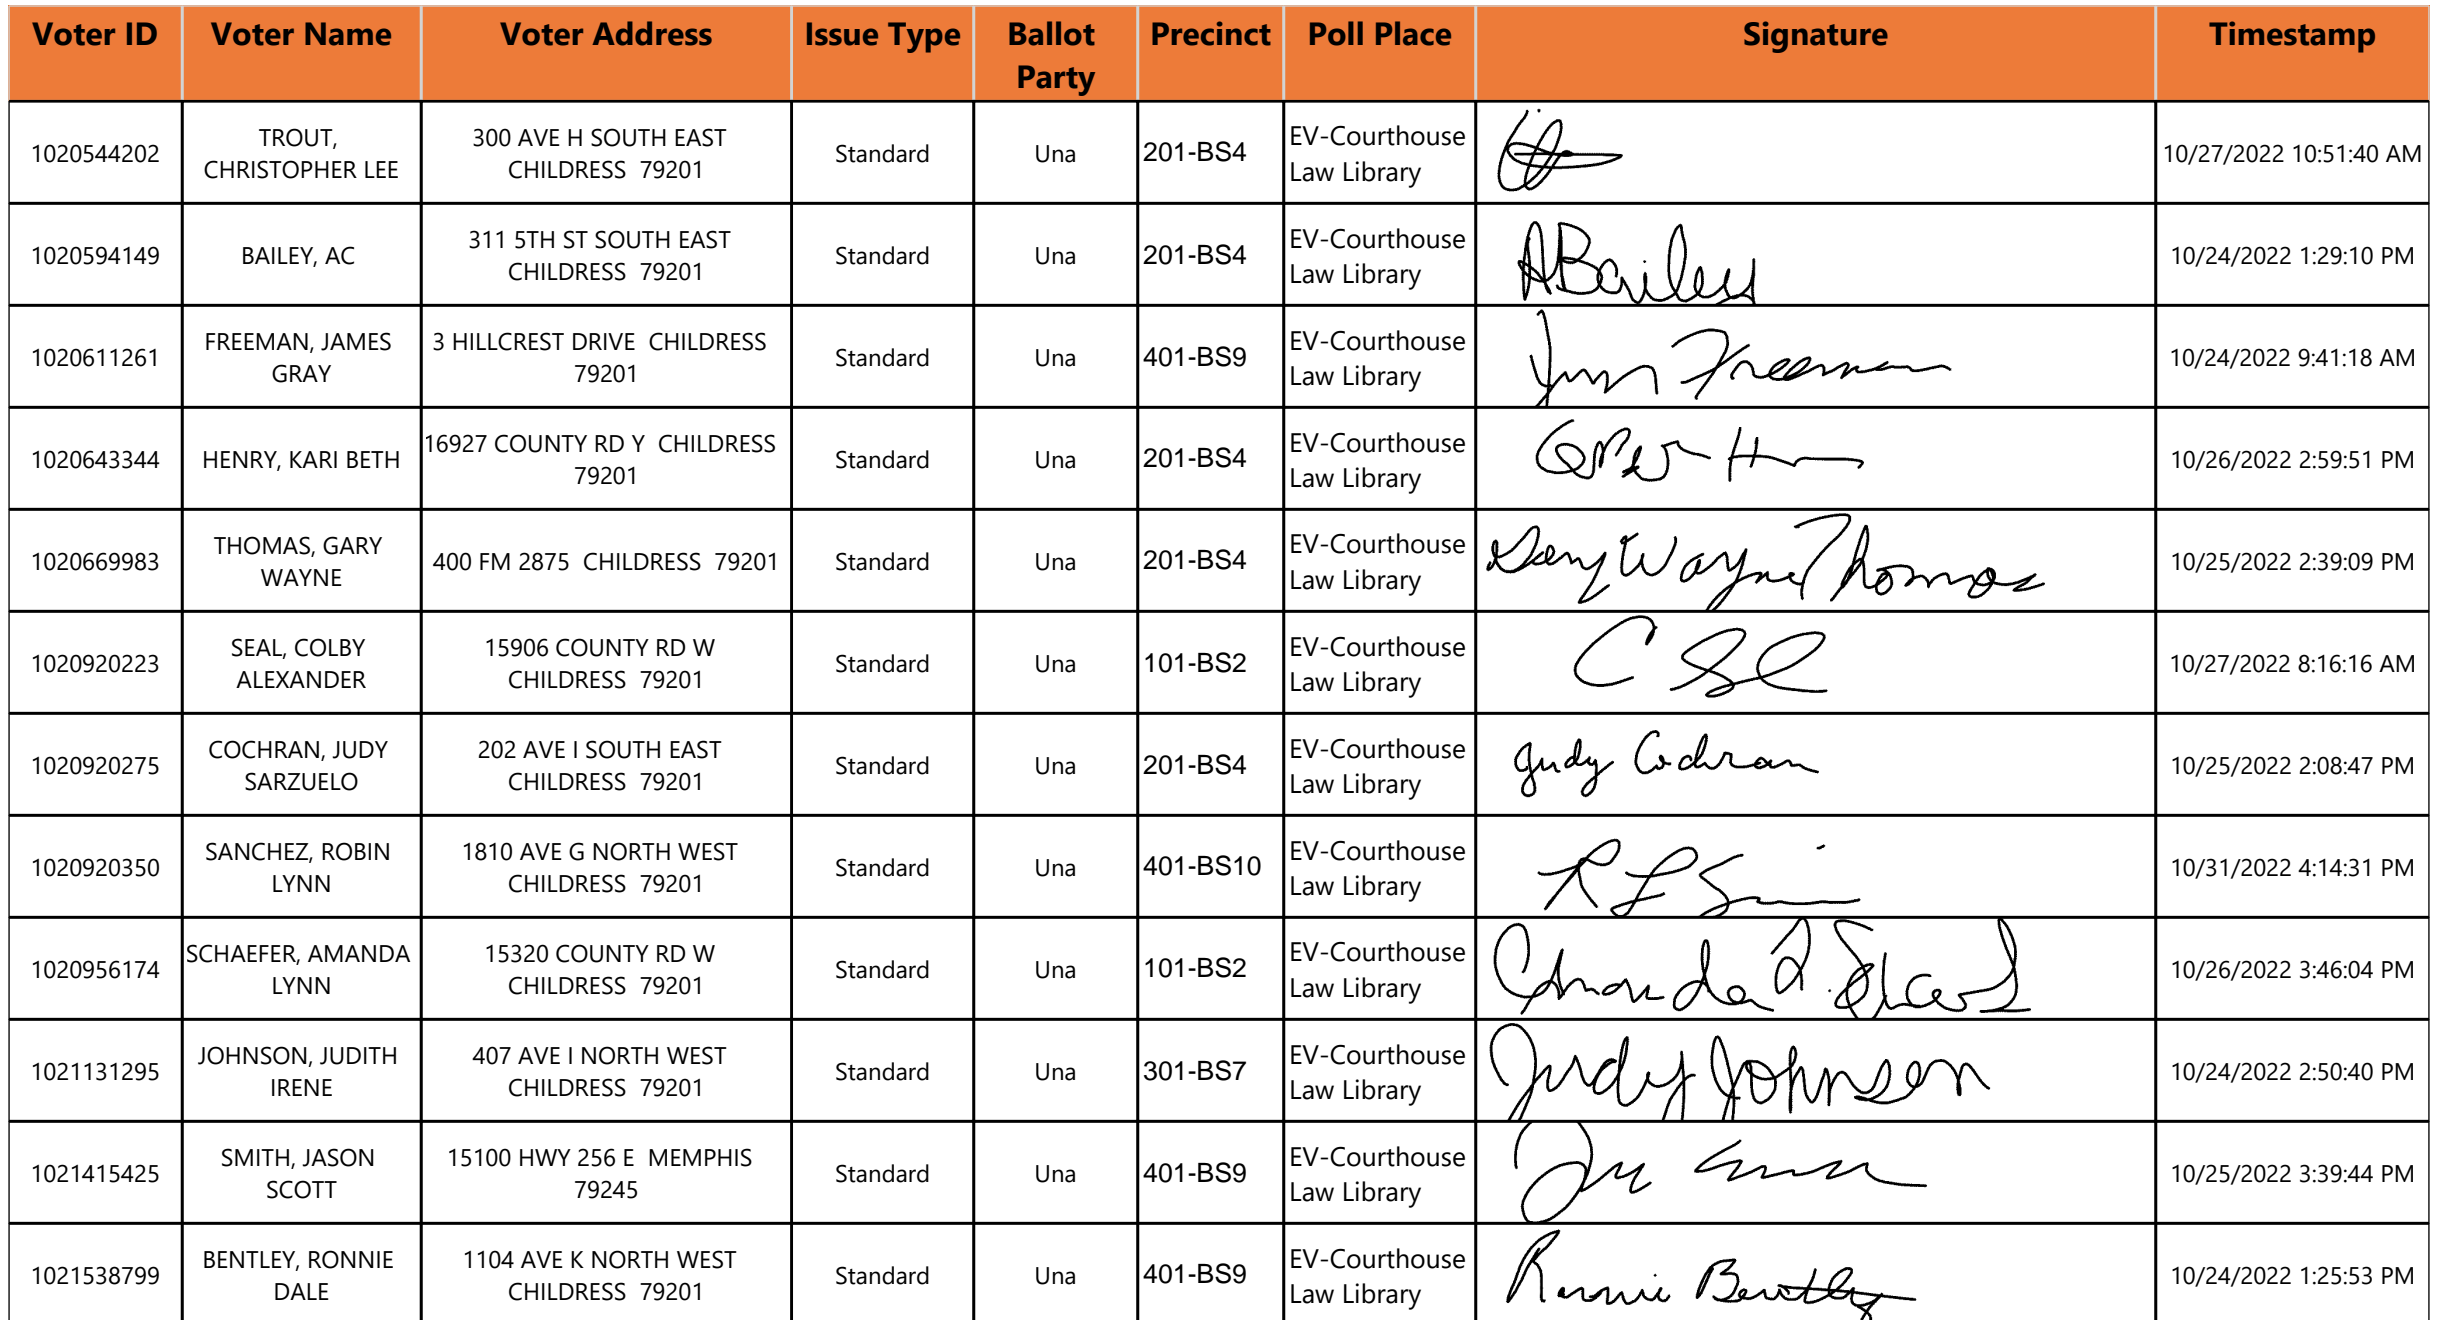 Voter ID Voter Name Voter Address Issue Type Ballot Party Precinct Poll Place Signature Timestamp
1020544202 TROUT, CHRISTOPHER LEE 300 AVE H SOUTH EAST CHILDRESS 79201 Standard Una 201-BS4 EV-Courthouse Law Library 10/27/2022 10:51:40 AM
1020594149 BAILEY, AC 311 5TH ST SOUTH EAST CHILDRESS 79201 Standard Una 201-BS4 EV-Courthouse Law Library ABailey 10/24/2022 1:29:10 PM
1020611261 FREEMAN, JAMES GRAY 3 HILLCREST DRIVE CHILDRESS 79201 Standard Una 401-BS9 EV-Courthouse Law Library Freeman 10/24/2022 9:41:18 AM
1020643344 HENRY, KARI BETH 16927 COUNTY RD Y CHILDRESS 79201 Standard Una 201-BS4 EV-Courthouse Law Library 10/26/2022 2:59:51 PM
1020669983 THOMAS, GARY WAYNE 400 FM 2875 CHILDRESS 79201 Standard Una 201-BS4 EV-Courthouse Law Library Gary Wayne Thomas 10/25/2022 2:39:09 PM
1020920223 SEAL, COLBY ALEXANDER 15906 COUNTY RD W CHILDRESS 79201 Standard Una 101-BS2 EV-Courthouse Law Library 10/27/2022 8:16:16 AM
1020920275 COCHRAN, JUDY SARZUELO 202 AVE I SOUTH EAST CHILDRESS 79201 Standard Una 201-BS4 EV-Courthouse Law Library Judy Cochran 10/25/2022 2:08:47 PM
1020920350 SANCHEZ, ROBIN LYNN 1810 AVE G NORTH WEST CHILDRESS 79201 Standard Una 401-BS10 EV-Courthouse Law Library 10/31/2022 4:14:31 PM
1020956174 SCHAEFER, AMANDA LYNN 15320 COUNTY RD W CHILDRESS 79201 Standard Una 101-BS2 EV-Courthouse Law Library Amanda 10/26/2022 3:46:04 PM
1021131295 JOHNSON, JUDITH IRENE 407 AVE I NORTH WEST CHILDRESS 79201 Standard Una 301-BS7 EV-Courthouse Law Library Judy Johnson 10/24/2022 2:50:40 PM
1021415425 SMITH, JASON SCOTT 15100 HWY 256 E MEMPHIS 79245 Standard Una 401-BS9 EV-Courthouse Law Library 10/25/2022 3:39:44 PM
1021538799 BENTLEY, RONNIE DALE 1104 AVE K NORTH WEST CHILDRESS 79201 Standard Una 401-BS9 EV-Courthouse Law Library Ronnie Bentley 10/24/2022 1:25:53 PM